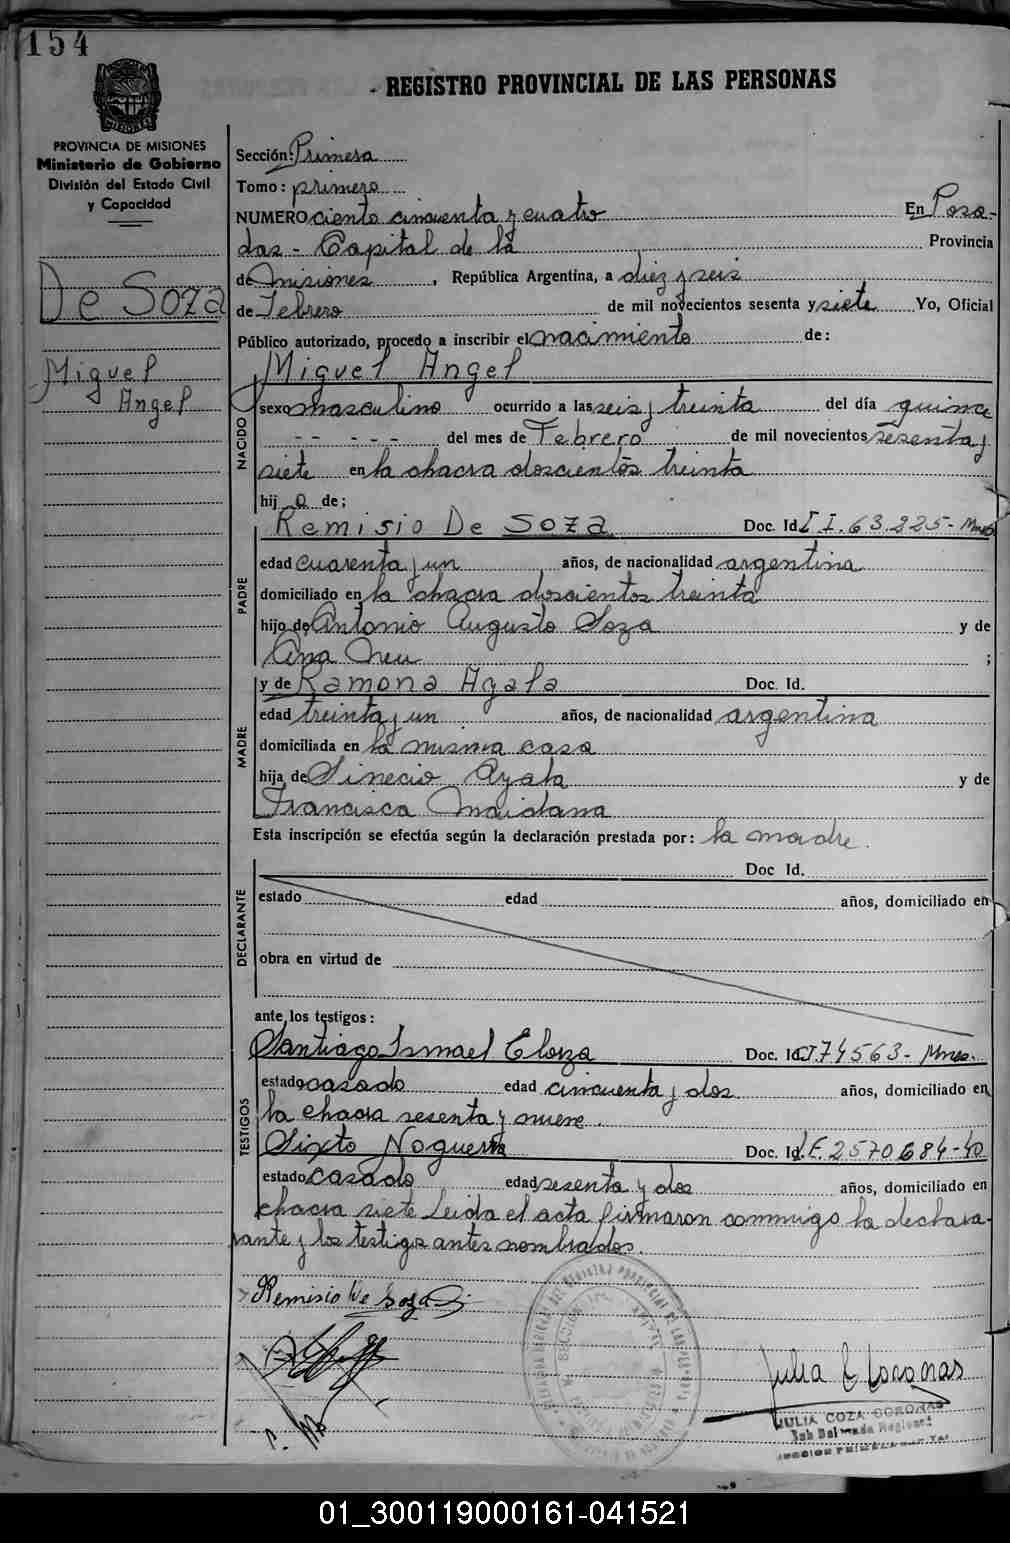 154
REGISTRO PROVINCIAL DE LAS PERSONAS
PROVINCIA DE MISIONES
Ministerio de Gobierno
División del Estado Civil
y Capacidad
De Soza
Miguel
Angel
Sección: Primera
Tomo: primero
NUMERO ciento cincuenta y cuatro En Posa-
das - Capital de la Provincia
de Misiones, República Argentina, a diez y seis
de Febrero de mil novecientos sesenta y siete Yo, Oficial
Público autorizado, procedo a inscribir el nacimiento de:
Miguel Angel
NACIDO
sexo masculino ocurrido a las seis y treinta del día quince
-- --- del mes de Febrero de mil novecientos sesenta y
siete en la chacra doscientos treinta
hij o de;
PADRE
Remisio De Soza Doc. Id. C I. 63.225- Mnes
edad cuarenta y un años, de nacionalidad argentina
domiciliado en la chacra doscientos treinta
hijo de Antonio Augusto Soza y de
Ana Neu ;
MADRE
y de Ramona Ayala Doc. Id.
edad treinta y un años, de nacionalidad argentina
domiciliada en la misma casa
hija de Sinecio Ayala y de
Francisca Maidana
Esta inscripción se efectúa según la declaración prestada por: la madre.
DECLARANTE
Doc Id.
estado edad años, domiciliado en
obra en virtud de
ante los testigos:
TESTIGOS
Santiago Ismael Eloiza Doc. Id. CI 74563- Mnes.
estado casado edad cincuenta y dos años, domiciliado en
la chacra sesenta y nueve.
Sixto Noguera Doc. Id. LE. 2570684-40
estado casado edad sesenta y dos años, domiciliado en
chacra siete Leida el acta firmaron conmigo la declara-
rante y los testigos antes nombrados.
Remisio De Soza
Julia C Coronas
JULIA COZA CORONAS
01_300119000161-041521